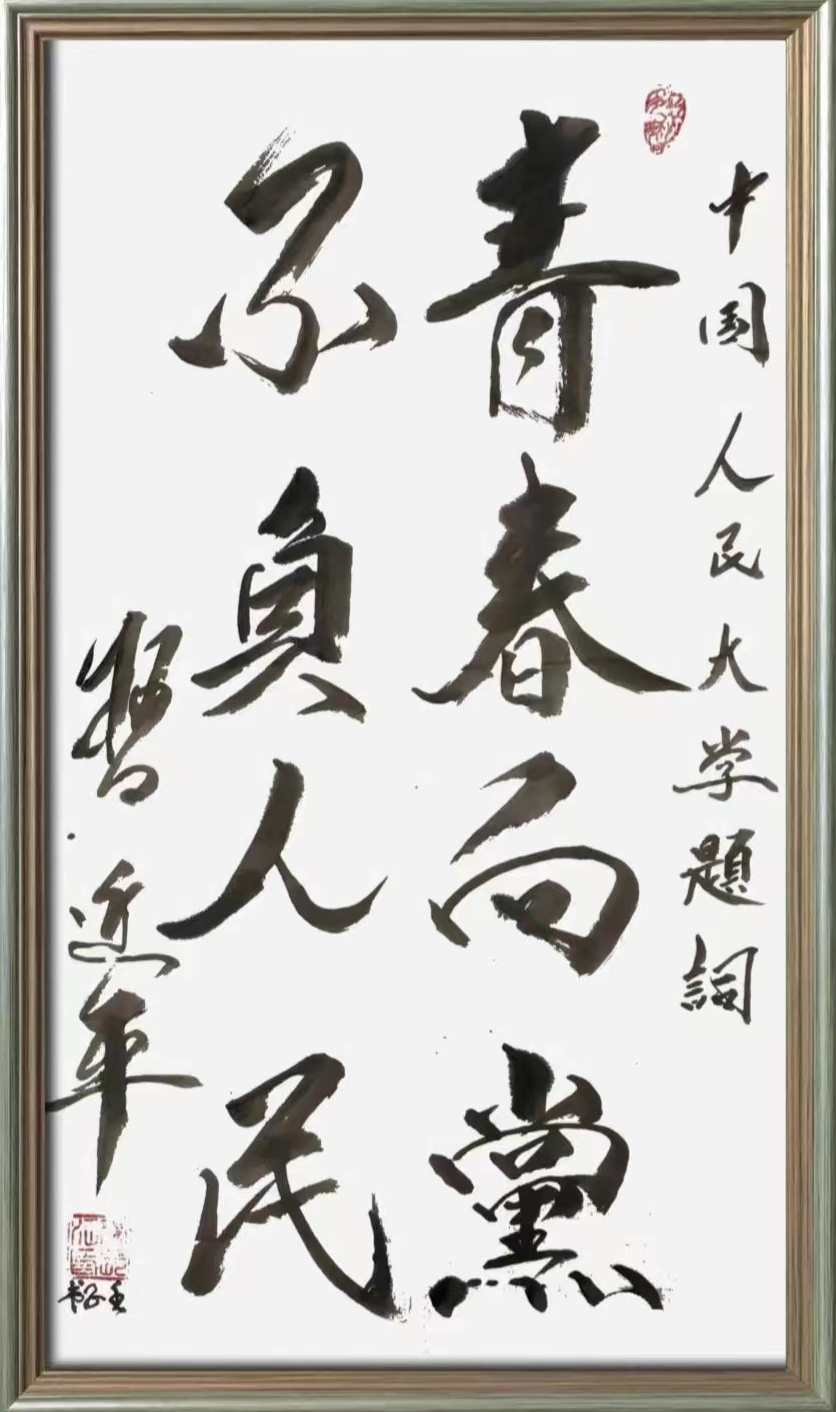 中国人民大学題詞
青春向黨
不負人民
習近平